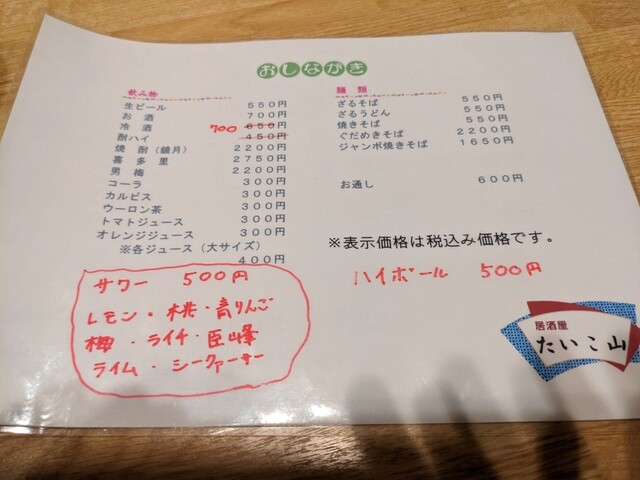 おしながき
飲み物
生ビール 550円
お酒 700円
冷酒 700 650円
酎ハイ 450円
焼酎（鏡月） 2200円
喜多里 2750円
男梅 2200円
コーラ 300円
カルピス 300円
ウーロン茶 300円
トマトジュース 300円
オレンジジュース 300円
※各ジュース（大サイズ）
400円
サワー 500円
レモン・桃・青りんご
梅・ライチ・巨峰
ライム・シークァーサー
麺類
ざるそば 550円
ざるうどん 550円
焼きそば 550円
ぐだめきそば 2200円
ジャンボ焼きそば 1650円
お通し 600円
※表示価格は税込み価格です。
ハイボール 500円
居酒屋
たいこ山